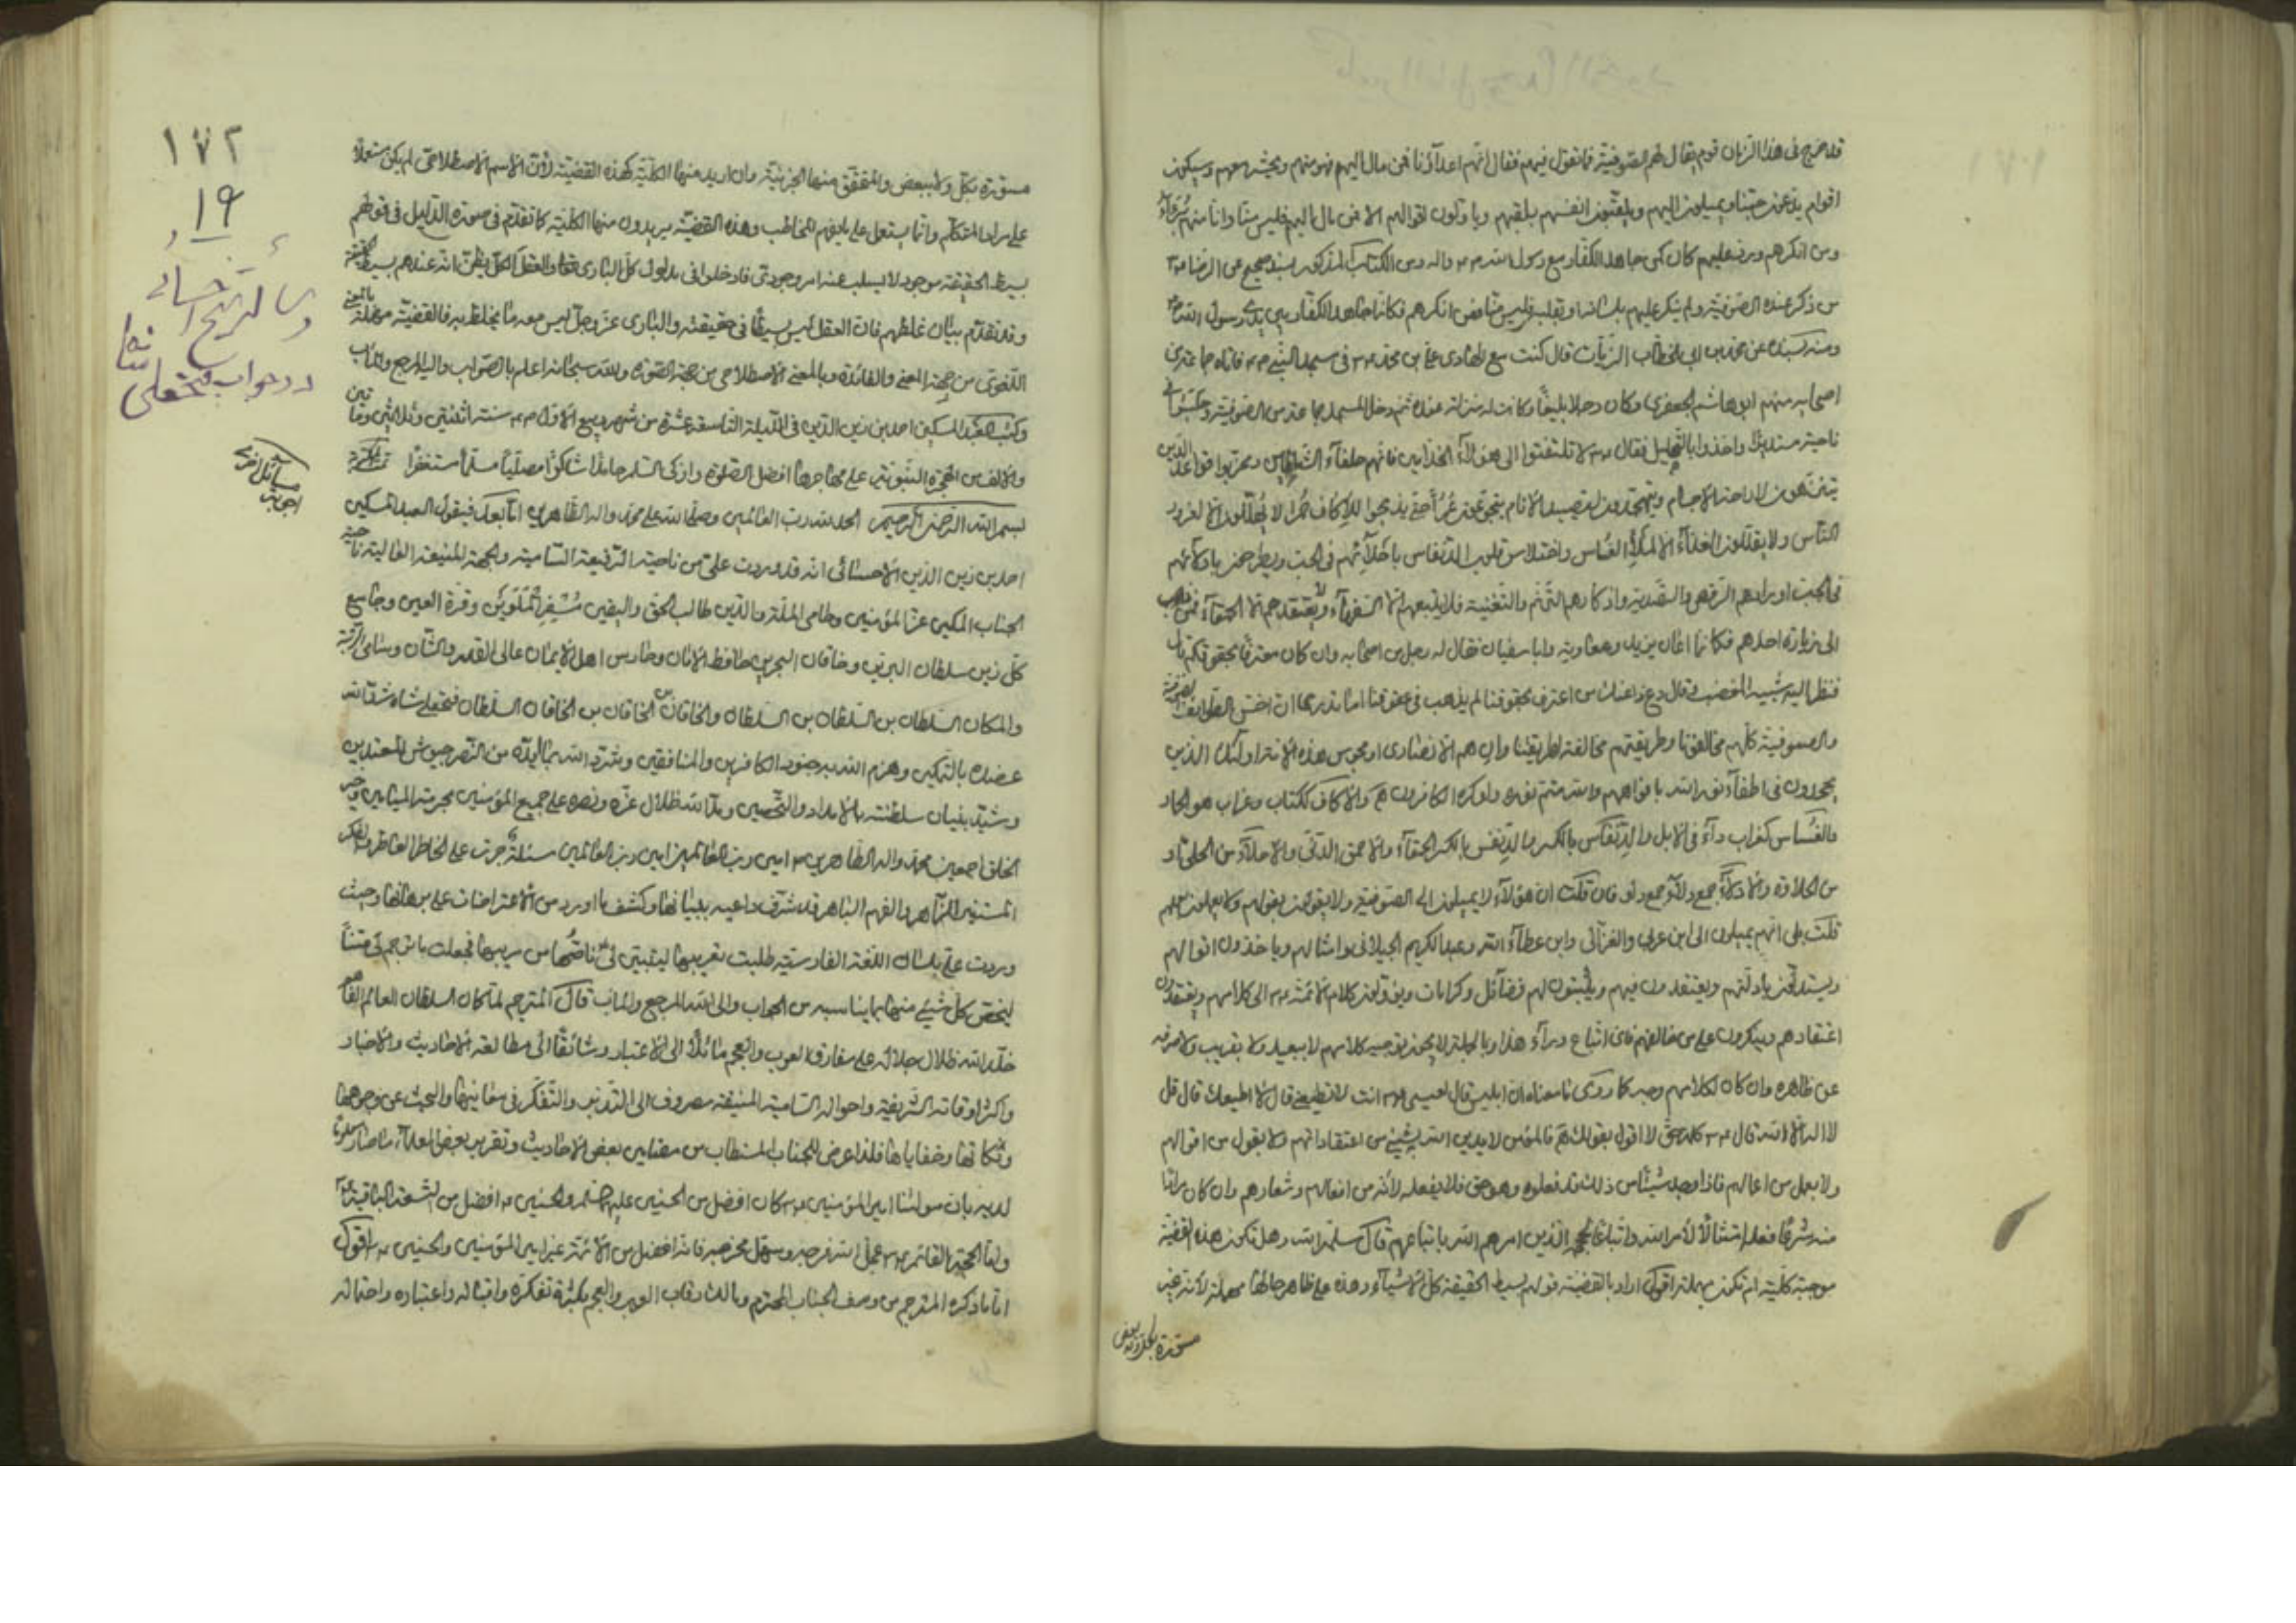 قد خرج فى هذا الزمان قوم يقال لهم الصوفية فما تقول فيهم فقال انهم اعدآؤنا فمن مال اليهم فهو منهم ويحشر معهم وسيكون
اقوام يدعون حبنا ويميلون اليهم ويلقبون انفسهم بلقبهم وياولون اقوالهم الا فمن مال اليهم فليس منا وانا منهم برءآء
ومن انكرهم ورد عليهم كان كمن جاهد الكفار مع رسول الله ص واله ومن الكتاب المذكور بسند صحيح عن الرضا ع
من ذكر عنده الصوفية ولم ينكر عليهم بلسانه او بقلبه فليس منا ومن انكرهم فكانما جاهد الكفار بين يدى رسول الله ص
ومنه بسنده عن محمد بن ابى الخطاب الزيات قال كنت مع الهادى على بن محمد ع فى مسجد النبى ص فاتاه جماعة من
اصحابه منهم ابو هاشم الجعفرى وكان رجلا بليغا وكانت له منزلة عنده ثم دخل المسجد جماعة من الصوفية وجلسوا فى
ناحية مستديرا واخذوا بالتهليل فقال ع لا تلتفتوا الى هؤلآء الخداعين فانهم حلفآء الشياطين ومخربوا قواعد الدين
يتزهدون لاراحة الاجسام ويتهجدون لصيد الانام يتجوعون عمرا حتى يذبحوا للاكاف حمرا لا يهللون الا لغرور
الناس ولا يقللون الغذآء الا لملأ العساس واختلاس قلوب الدفناس باحلآئهم فى الحب ويطرحون بادلآئهم
فى الجب اورادهم الرقص والتصدية واذكارهم الترنم والتغنية فلا يتبعهم الا السفهآء ولا يعتقدهم الا الحمقآء فمن ذهب
الى زيارة احدهم فكانما اعان يزيد ومعاوية وابا سفيان فقال له رجل من اصحابه وان كان معترفا بحقوقكم قال
فنظر اليه شبيه المغضب وقال دع ذا عنك من اعترف بحقوقنا لم يذهب فى عقوقنا اما تدرى انهم اخس الطوايف الصوفية
والصوفية كلهم مخالفونا وطريقتهم مخالفة لطريقتنا وان هم الا نصارى او مجوس هذه الامة اولئك الذين
يجهدون فى اطفآء نور الله بافواههم والله متم نوره ولو كره الكافرون والاكاف ككتاب وغراب هو الحمار
من الحلاوة والادلآء جمع دلو فان قلت ان هؤلآء لا يميلون الى الصوفية ولا يقولون بقولهم ولا يعملون بعملهم
قلت بلى انهم يميلون الى ابن عربى والغزالى وابن عطآء الله وعبد الكريم الجيلانى وامثالهم وياخذون اقوالهم
ويستدلون بادلتهم ويعتقدون فيهم ويثبتون لهم فضآئل وكرامات ويؤولون كلام الائمة ع الى كلامهم ويعتقدون
اعتقادهم وينكرون على من خالفهم فاى اتباع ورآء هذا وبالجملة لا يجوز توجيه كلامهم لا ببعيد ولا بقريب ولا صرفه
عن ظاهره وان كان لكلامهم وجه كما روى ما معناه ان ابليس قال لعيسى ع انت لا تطيعنى قال لا اطيعك قال قل
لا اله الا الله قال ع كلمة حق لا اقول بقولك فالمؤمن لا يدين الله بشىء من اعتقاداتهم ولا يقول من اقوالهم
ولا يعمل من اعمالهم فاذا وجد شيئا من ذلك قد فعلوه وهو حق فلا يفعله لانه من افعالهم وشعارهم وان كان مرادا
منه شرعا فعله امتثالا لامر الله واتباعا الذين امرهم الله باتباعهم قال سلمه الله وهل تكون هذه القضية
موجبة كلية ام تكون مهملة اقول اراد بالقضية قولهم بسيط الحقيقة كل الاشيآء وهذه على ظاهر حالها مهملة لانه غير
مسورة بكل ولا ببعض
مسورة بكل ولا ببعض والمتحقق منها الجزئية وان اريد منها الكلية كهذه القضية لان الاسم الاصطلاحى لم يكن مستعملا
على مراد المتكلم وانما يستعمل على ما يفهم المخاطب وهذه القضية يريدون منها الكلية كما تقدم فى صورة الدليل فى قولهم
بسيط الحقيقة موجود لا يسلب عنه امر وجودى فادخلوا فى مدلول كل البارى تعالى والعقل الكلى بظن انه عندهم بسيط الحقيقة
وقد تقدم بيان غلطهم فان العقل ليس بسيطا فى حقيقته والبارى عز وجل ليس معه ما يخلط به فالقضية مهملة بالمعنى
اللغوى من جهة المعنى والفائدة وبالمعنى الاصطلاحى من جهة الصورة والله سبحانه اعلم بالصواب واليه المرجع والمآب
وكتب العبد المسكين احمد بن زين الدين فى الليلة التاسعة عشرة من شهر ربيع الاول سنة اثنتين وثلاثين ومأتين
والالف من الهجرة النبوية على مهاجرها افضل الصلوة وازكى السلام حامدا شاكرا مصليا مسلما مستغفرا تمت
بسم الله الرحمن الرحيم الحمد لله رب العالمين وصلى الله على محمد واله الطاهرين اما بعد فيقول العبد المسكين
احمد بن زين الدين الاحسائى انه قد وردت على من ناحية الرفيعة السامية والجهة المنيعة العالية ناحية
الجناب المكين عز المؤمنين وحامى الملة والدين طالب الحق واليقين وقرة العين وجامع
كل زين سلطان البرين وخاقان البحرين حافظ الامان وحارس اهل الايمان عالى القدر والشان وسامى الرتبة
والمكان السلطان بن السلطان بن السلطان والخاقان بن الخاقان بن الخاقان السلطان فتحعلى شاه شد الله
عضده بالتمكين وهزم الله به جنود الكافرين والمنافقين وشرد الله بما ايده من النصر جيوش المعتدين
وشيد بنيان سلطنته بالامداد والتحصين ومد الله ظلال عزه ونصره على جميع المؤمنين بحرمة الميامين وخير
الخلق اجمعين محمد واله الطاهرين ع امين رب العالمين امين رب العالمين مسئلة جرت على الخاطر العاطر والفكر
المستنير الزاهر والفهم الباهر قد شرف داعيه ببيانها وكشف ما اورد من الاعتراضات على برهانها وحيث
وردت على بلسان اللغة الفارسية طلبت تعريبها ليتبين لى ناصحها من مريبها فجعلت ما ترجم لى متنا
ليختص كل شىء منها بما يناسبه من الجواب والى الله المرجع والمآب قال المترجم لما كان السلطان العالم
خلد الله ظلال جلاله على مفارق العرب والعجم مائلا الى الاعتبار وشائقا الى مطالعة الاحاديث والاخبار
واكثر اوقاته الشريفة واحواله السامية المنيفة مصروف الى التدبر والتفكر فى معانيها والبحث عن وجوهها
ونكاتها وخفاياها فلذا عرض للجناب المستطاب من مضامين بعض الاحاديث وتقرير بعض العلمآء ما صار معلوما
لديه بان مولانا امير المؤمنين ع كان افضل من الحسنين عليهما السلام والحسنين ع افضل من التسعة الباقية ع
واما الحجة القائم ع عجل الله فرجه وسهل مخرجه فانه افضل من الائمة غير امير المؤمنين والحسنين ع اقول
اما ما ذكره المترجم من وصف الجناب المحترم ومالك رقاب العرب والعجم بكثرة تفكره واقباله واعتباره واحتماله
١٧٢
١٩
رسالة شيخ احسائى
در جواب فتحعلى شاه
مسائل اخرى
اجوبته